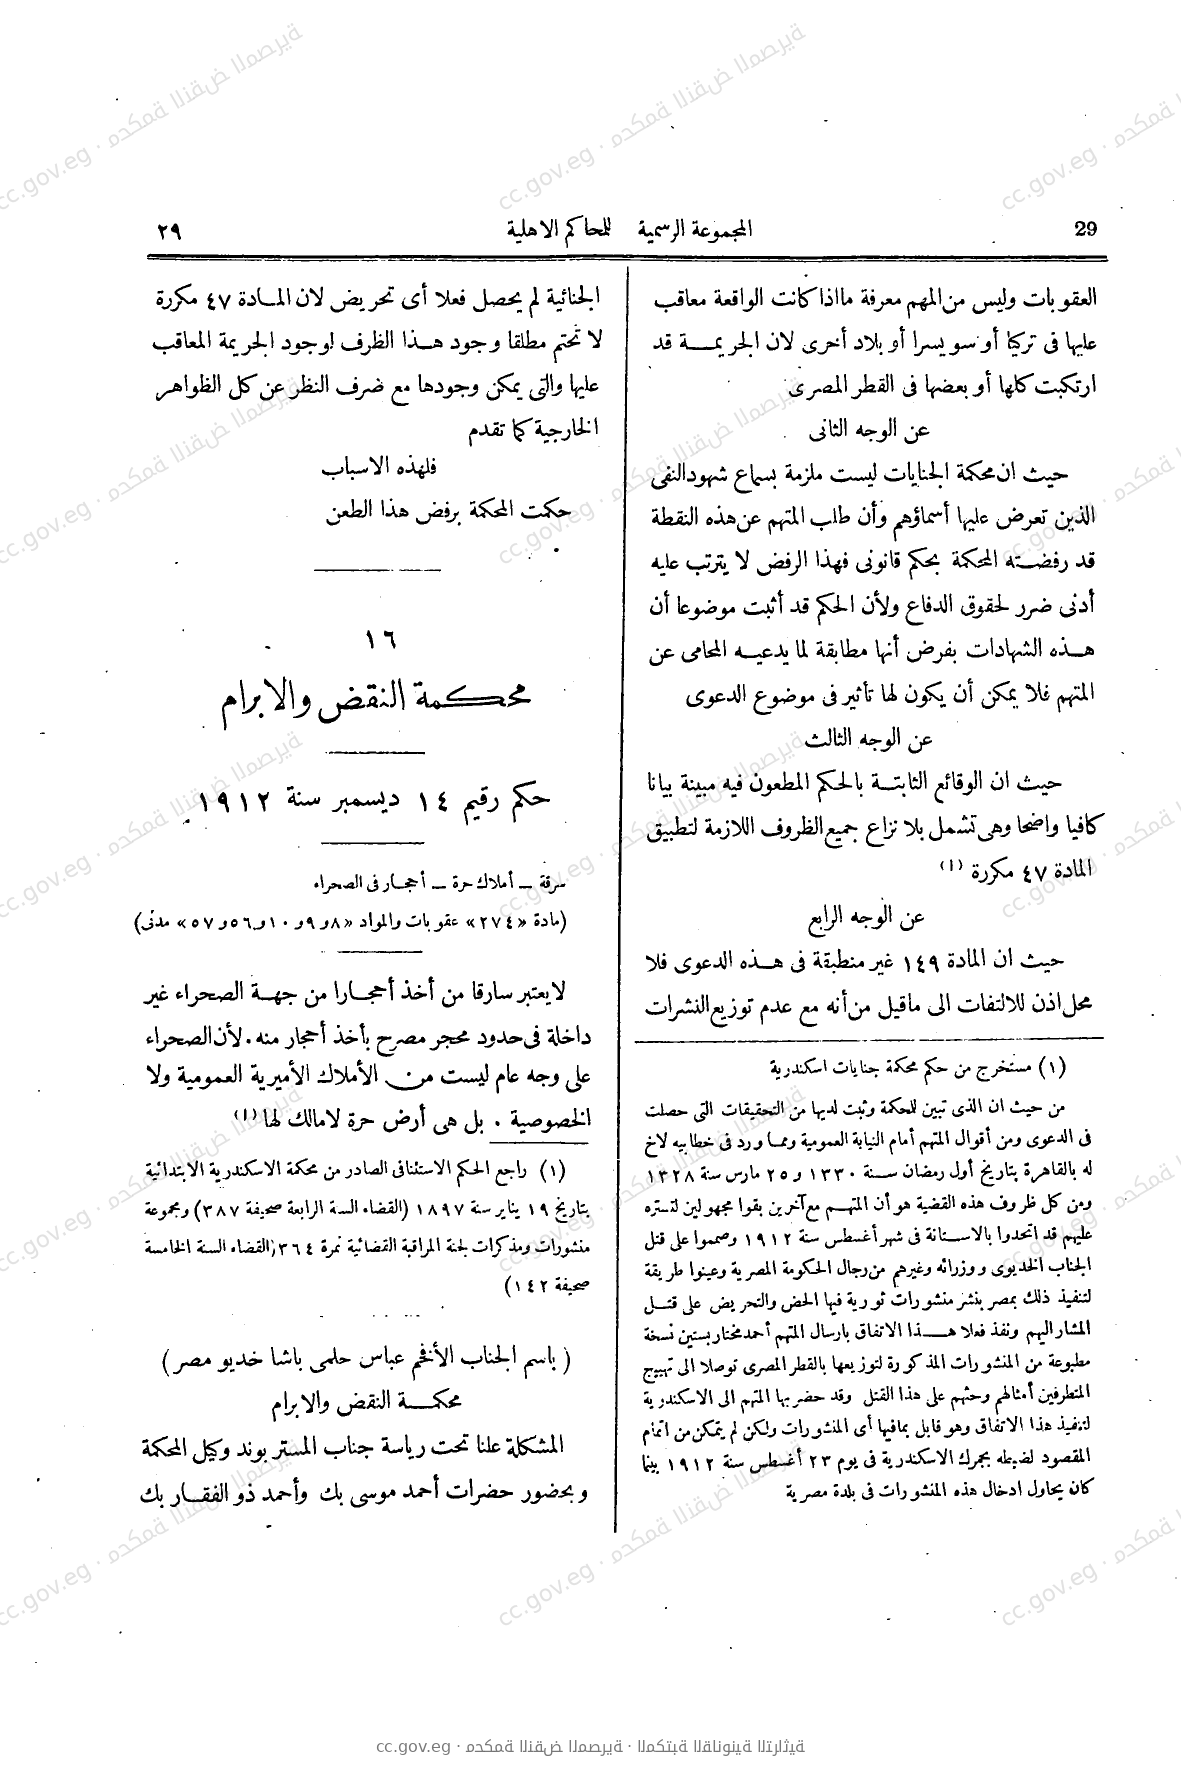 29
المجموعة الرسمية للمحاكم الاهلية
٢٩
العقوبات وليس من المهم معرفة مااذا كانت الواقعة معاقب
عليها فى تركيا أو سويسرا أو بلاد أخرى لان الجريمة قد
ارتكبت كلها أو بعضها فى القطر المصرى
عن الوجه الثانى
حيث ان محكمة الجنايات ليست ملزمة بسماع شهود النفى
الذين تعرض عليها أسماؤهم وأن طلب المتهم عن هذه النقطة
قد رفضته المحكمة بحكم قانونى فهذا الرفض لا يترتب عليه
أدنى ضرر لحقوق الدفاع ولأن الحكم قد أثبت موضوعا أن
هذه الشهادات بفرض أنها مطابقة لما يدعيه المحامى عن
المتهم فلا يمكن أن يكون لها تأثير فى موضوع الدعوى
عن الوجه الثالث
حيث ان الوقائع الثابتة بالحكم المطعون فيه مبينة بيانا
كافيا واضحا وهى تشمل بلا نزاع جميع الظروف اللازمة لتطبيق
المادة ٤٧ مكررة (١)
عن الوجه الرابع
حيث ان المادة ١٤٩ غير منطبقة فى هذه الدعوى فلا
محل اذن للالتفات الى ماقيل من أنه مع عدم توزيع النشرات
(١) مستخرج من حكم محكمة جنايات اسكندرية
من حيث ان الذى تبين للحكمة وثبت لديها من التحقيقات التى حصلت
فى الدعوى ومن أقوال المتهم أمام النيابة العمومية ومما ورد فى خطابيه لاخ
له بالقاهرة بتاريخ أول رمضان سنة ١٣٣٠ و ٢٥ مارس سنة ١٣٢٨
ومن كل ظروف هذه القضية هو أن المتهم مع آخرين بقوا مجهولين لتستره
عليهم قد اتحدوا بالاستانة فى شهر أغسطس سنة ١٩١٢ وصمموا على قتل
الجناب الخديوى ووزرائه وغيرهم من رجال الحكومة المصرية وعينوا طريقة
لتنفيذ ذلك بمصر بنشر منشورات ثورية فيها الحض والتحريض على قتل
المشار اليهم ونفذ فعلا هذا الاتفاق بارسال المتهم أحمد مختار بستين نسخة
مطبوعة من المنشورات المذكورة لتوزيعها بالقطر المصرى توصلا الى تهييج
المتطرفين أمثالهم وحثهم على هذا القتل وقد حضر بها المتهم الى الاسكندرية
لتنفيذ هذا الاتفاق وهو قابل بمافيها أى المنشورات ولكن لم يتمكن من اتمام
المقصود لضبطه بجمرك الاسكندرية فى يوم ٢٣ أغسطس سنة ١٩١٢ بينما
كان يحاول ادخال هذه المنشورات فى بلدة مصرية
الجنائية لم يحصل فعلا أى تحريض لان المادة ٤٧ مكررة
لا تحتم مطلقا وجود هذا الظرف لوجود الجريمة المعاقب
عليها والتى يمكن وجودها مع ضرف النظر عن كل الظواهر
الخارجية كما تقدم
فلهذه الاسباب
حكمت المحكمة برفض هذا الطعن
١٦
محكمة النقض والابرام
حكم رقيم ١٤ ديسمبر سنة ١٩١٢
سرقة ــ أملاك حرة ــ أحجار فى الصحراء
(مادة «٢٧٤» عقوبات والمواد «٨ و ٩ و ١٠ و ٥٦ و ٥٧» مدنى)
لايعتبر سارقا من أخذ أحجارا من جهة الصحراء غير
داخلة فى حدود محجر مصرح بأخذ أحجار منه. لأن الصحراء
على وجه عام ليست من الأملاك الأميرية العمومية ولا
الخصوصية . بل هى أرض حرة لامالك لها (١)
(١) راجع الحكم الاستئنافى الصادر من محكمة الاسكندرية الابتدائية
بتاريخ ١٩ يناير سنة ١٨٩٧ (القضاء السنة الرابعة صحيفة ٣٨٧) ومجموعة
منشورات ومذكرات لجنة المراقبة القضائية نمرة ٣٦٤ (القضاء السنة الخامسة
صحيفة ١٤٢)
( باسم الجناب الأفخم عباس حلمى باشا خديو مصر )
محكمة النقض والابرام
المشكلة علنا تحت رياسة جناب المستر بوند وكيل المحكمة
وبحضور حضرات أحمد موسى بك وأحمد ذو الفقار بك
cc.gov.eg · محكمة النقض المصرية · المكتبة القانونية التراثية